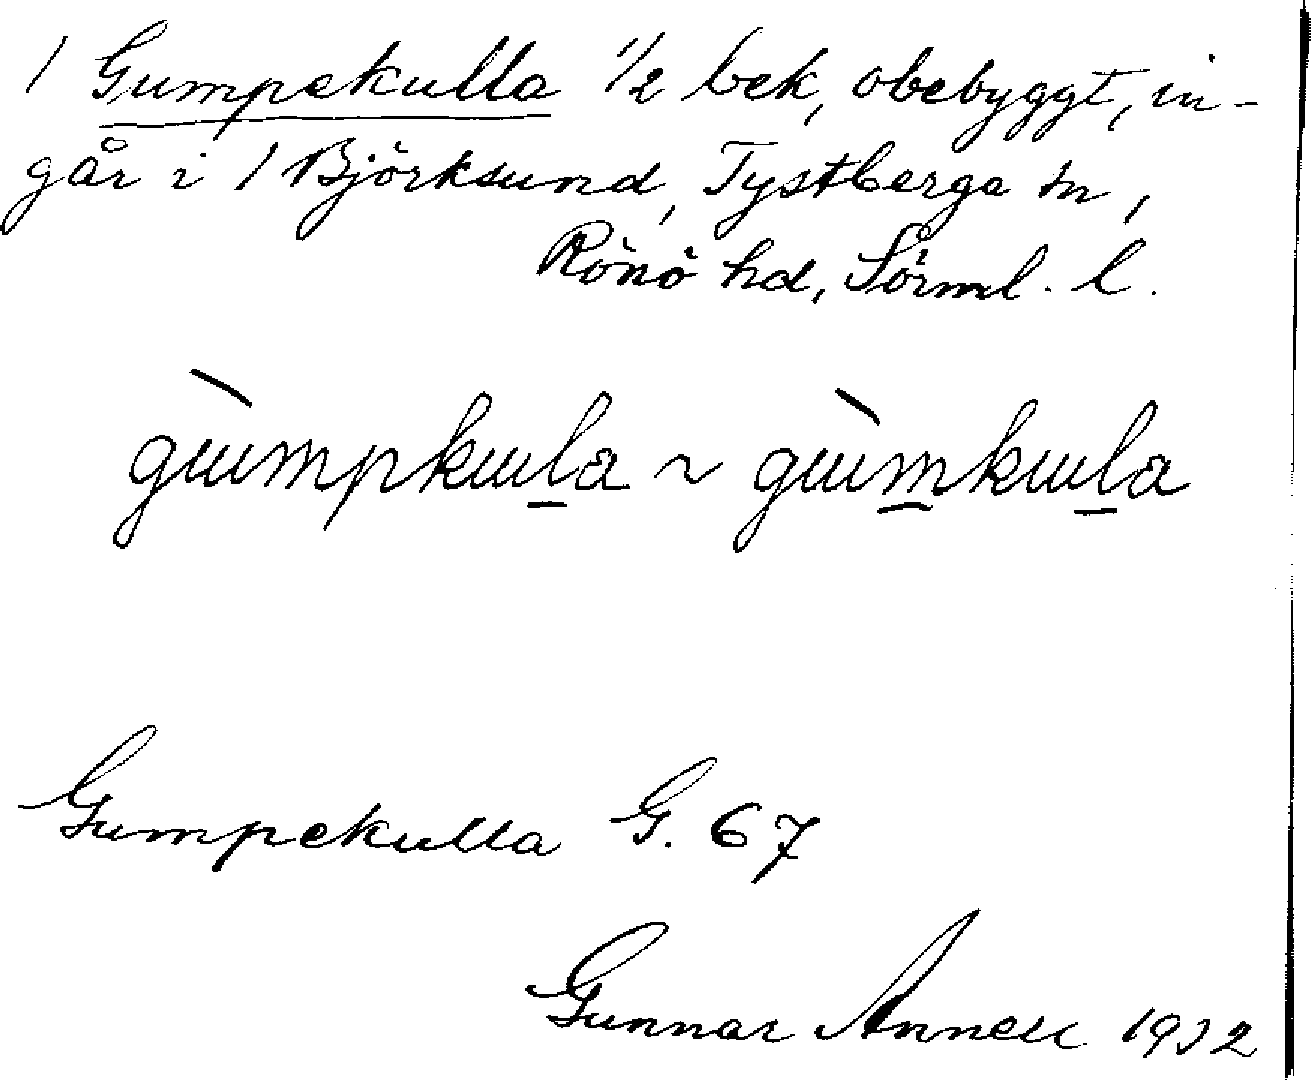 1 Gumpekulla 1/2 bek, obebyggt, in-
går i 1 Björksund, Tystberga sn,
Rönö hd, Sörml. l.
gɯ̀mpkɯl̲a ~ gɯ̀m̲kɯl̲a
Gumpekulla G. 67
Gunnar Annell 1932